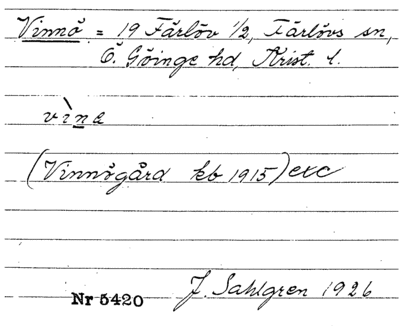 Vinnö = 19 Färlöv 1/2, Färlövs sn,
Ö. Göinge hd, Krist. l.
vìna
(Vinnögård kb 1915) exc
J. Sahlgren 1926
Nr 5420